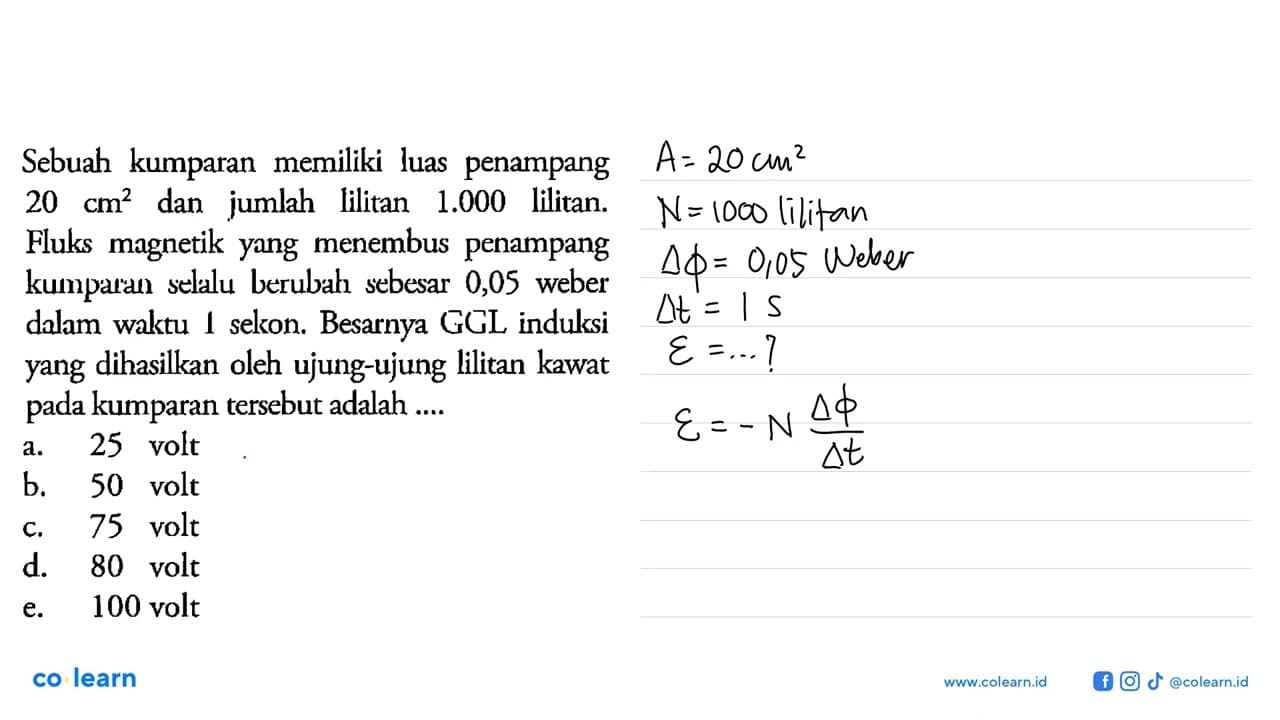 Sebuah kumparan memiliki luas penampang
20 cm² dan jumlah lilitan 1.000 lilitan.
Fluks magnetik yang menembus penampang
kumparan selalu berubah sebesar 0,05 weber
dalam waktu 1 sekon. Besarnya GGL induksi
yang dihasilkan oleh ujung-ujung lilitan kawat
pada kumparan tersebut adalah ....
a. 25 volt
b. 50 volt
c. 75 volt
d. 80 volt
e. 100 volt
A = 20 cm²
N = 1000 lilitan
Δϕ = 0,05 Weber
Δt = 1 s
ε = ... ?
ε = - N Δϕ/Δt
co learn
www.colearn.id
@colearn.id